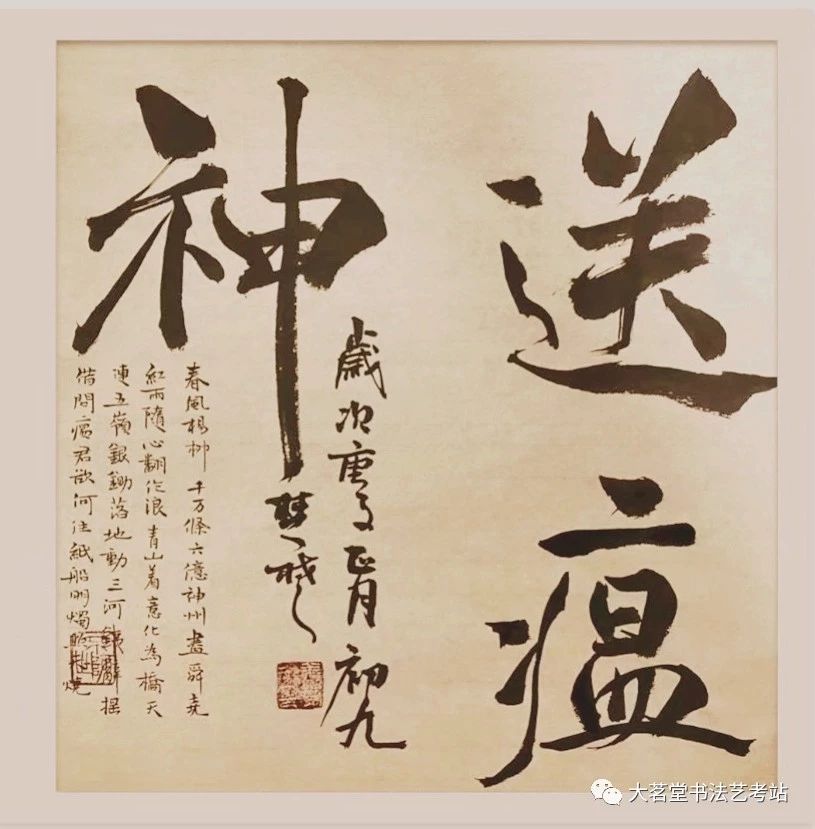 送瘟
神
歲次庚子正月初九
春風楊柳千万條六億神州盡舜堯
紅雨隨心翻作浪青山着意化為橋天
連五嶺銀鋤落地動三河鐵臂摇
借問瘟君欲何往紙船明燭照天燒
大茗堂书法艺考站